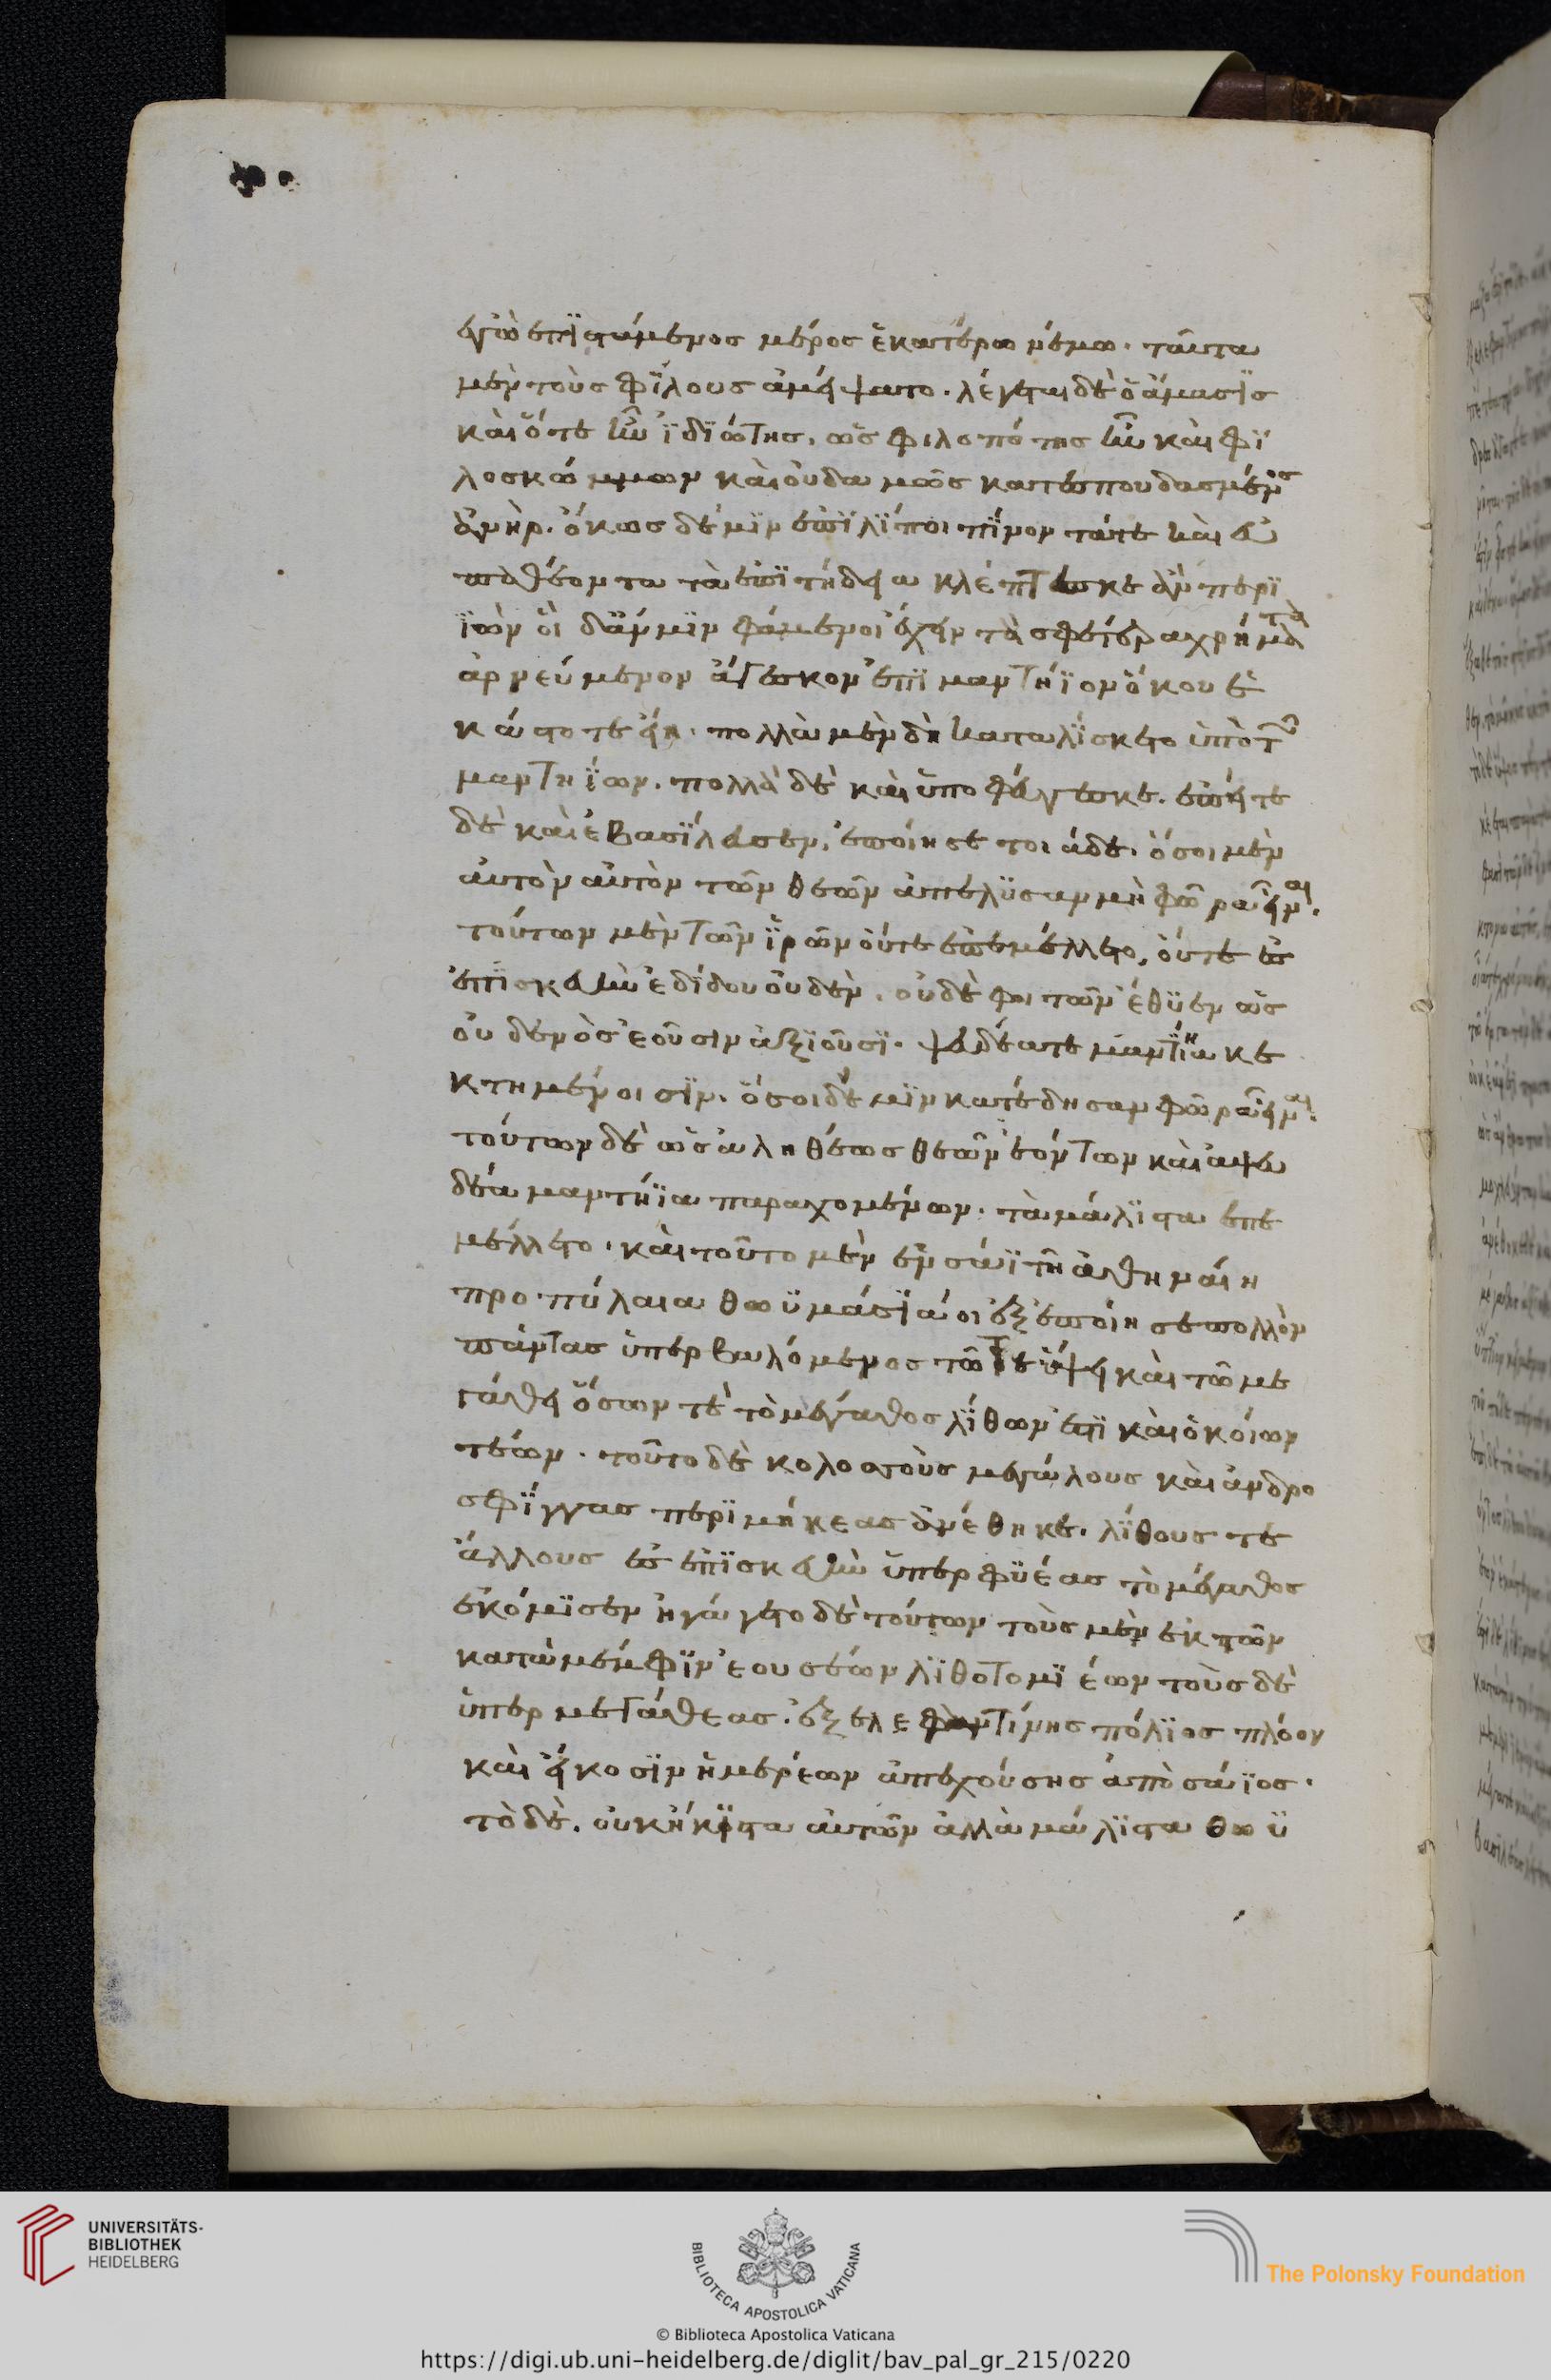 ἐγὼ ἐπϊστάμενος μέρος ἑκατέρω νέμω. ταῦτα
μὲν τοὺς φΐλους ἀμείψατο. λέγεται δὲ ὁ ἄμασϊς
καὶ ὅτε ἦν ἰδϊώτης, ὡς φιλοπότης ἦν καὶ φϊ
λοσκώμμων καὶ οὐδαμῶς κατεσπουδασμένος
ἀνήρ. ὅκως δέ μϊν ἐπϊλίποι πίνοντά τε καὶ εὐ
παθέοντα τὰ ἐπϊτήδεια κλέπτεσκε ἂν περϊ
ϊὼν οἱ δ᾽ ἄν μϊν φάμενοι ἔχειν τὰ σφέτερα χρήματα
ἀρνεύμενον ἄγεσκον ἐπὶ μαντήϊον ὅκου ἑ
κάστοτε εἴη. πολλὰ μὲν δὴ κατηλΐσκετο ὑπὸ τῶν
μαντηΐων. πολλὰ δὲ καὶ ὑποφεύγεσκε. ἐπείτε
δὲ καὶ ἐβασΐλευσεν, ἐποίησε τοιάδε. ὅσοι μὲν
αὐτὸν αὐτὸν τῶν θεῶν ἀπέλϋσαν μὴ φῶρα εἶναι.
τούτων μὲν τῶν ἱρῶν οὔτε ἐπεμέλλετο, οὔτε ἐς
ἐπϊσκευὴν ἐδίδου οὐδέν. οὐδὲ φοιτῶν ἔθϋεν ὡς
οὐδενὸς ἐοῦσιν ἀξϊοῦσϊ. ψευδέα τε μαντήϊα κε
κτημένοισϊν. ὅσοι δέ μϊν κατέδησαν φῶρα εἶναι.
τούτων δὲ ὡς ἀληθέως θεῶν ἐόντων καὶ ἀψευ
δέα μαντήϊα παρεχομένων. τὰ μάλϊστα ἐπε
μέλλετο. καὶ τοῦτο μὲν ἐν σάϊ τῆ ἀθηναίη
προπύλαια θωϋμάσϊά οἱ ἐξεποίησε πολλὸν
πάντας ὑπερβαλόμενος τῶ τε ὕψει καὶ τῶ με
γάθει ὅσων τὲ τὸ μέγαθος λίθων ἐστϊ καὶ ὁκοίων
τέων. τοῦτο δὲ κολοσσοὺς μεγάλους καὶ ἀνδρο
σφΐγγας περϊμήκεας ἀνέθηκε. λΐθους τε
ἄλλους ἐς ἐπϊσκευὴν ὑπερφϋέας τὸ μέγαθος
ἐκόμϊσεν ἠγάγετο δὲ τούτων τοὺς μὲν ἐκ τῶν
κατὰ μέμφϊν ἐουσέων λϊθοτομϊέων τοὺς δὲ
ὑπερμεγάθεας. ἐξ ἐλεφαντίνης πόλϊος πλόον
καὶ εἴκοσϊν ἡμερέων ἀπεχούσης ἀπὸ σάϊος.
τὸ δὲ. οὐκ ἥκϊστα αὐτῶν ἀλλὰ μάλϊστα θωϋ
UNIVERSITÄTS-
BIBLIOTHEK
HEIDELBERG
BIBLIOTECA APOSTOLICA VATICANA
The Polonsky Foundation
© Biblioteca Apostolica Vaticana
https://digi.ub.uni-heidelberg.de/diglit/bav_pal_gr_215/0220